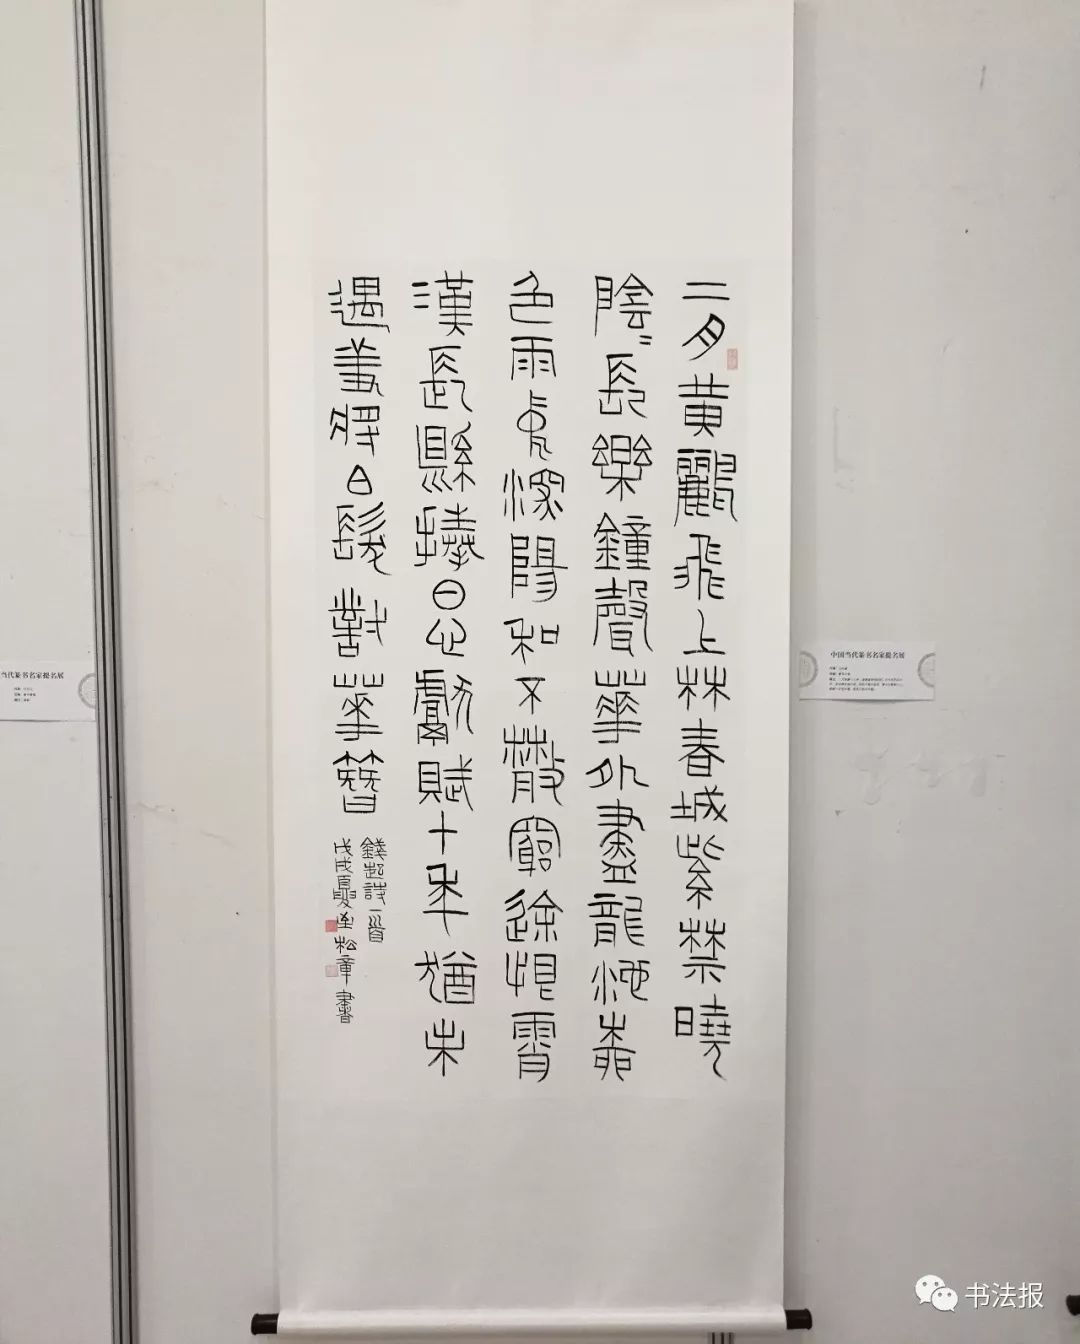 二月黄鸝飛上林春城紫禁曉
陰=長樂鐘聲華外盡龍池柳
色雨中深陽和不散窮途恨霄
漢長縣捧日心獻賦十年猶未
遇羞將白髮對華簪
錢起詩一首
戊戌夏 松章書
中国当代篆书名家提名展
当代篆书名家提名展
书法报